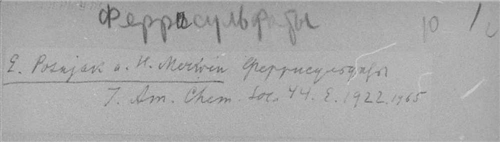 Феррисульфаты 10
E. Posnjak a. H. Merwin Феррисульфаты
J. Am. Chem. Soc. 44. E. 1922. 1965